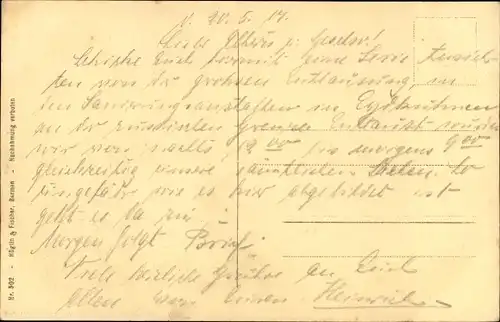 20.5.17.
Liebe Eltern u. Geschw.!
Schicke Euch hiermit eine Serie Ansich-
ten von der grossen Entlausung, in
den Sanierungsanstalten in Eydtkuhnen
an der russischen Grenze. Entlaust wurden
wir von nachts 12 00 bis morgens 9 00
gleichzeitig unsere sämtlichen Sachen. So
ungefähr wie es hier abgebildet ist
geht es da zu.
Morgen folgt Brief.
Viele herzliche Grüße an Euch
allen von Euren Heinrich
Nr. 502 - Röglin & Fischer, Barmen - Nachahmung verboten